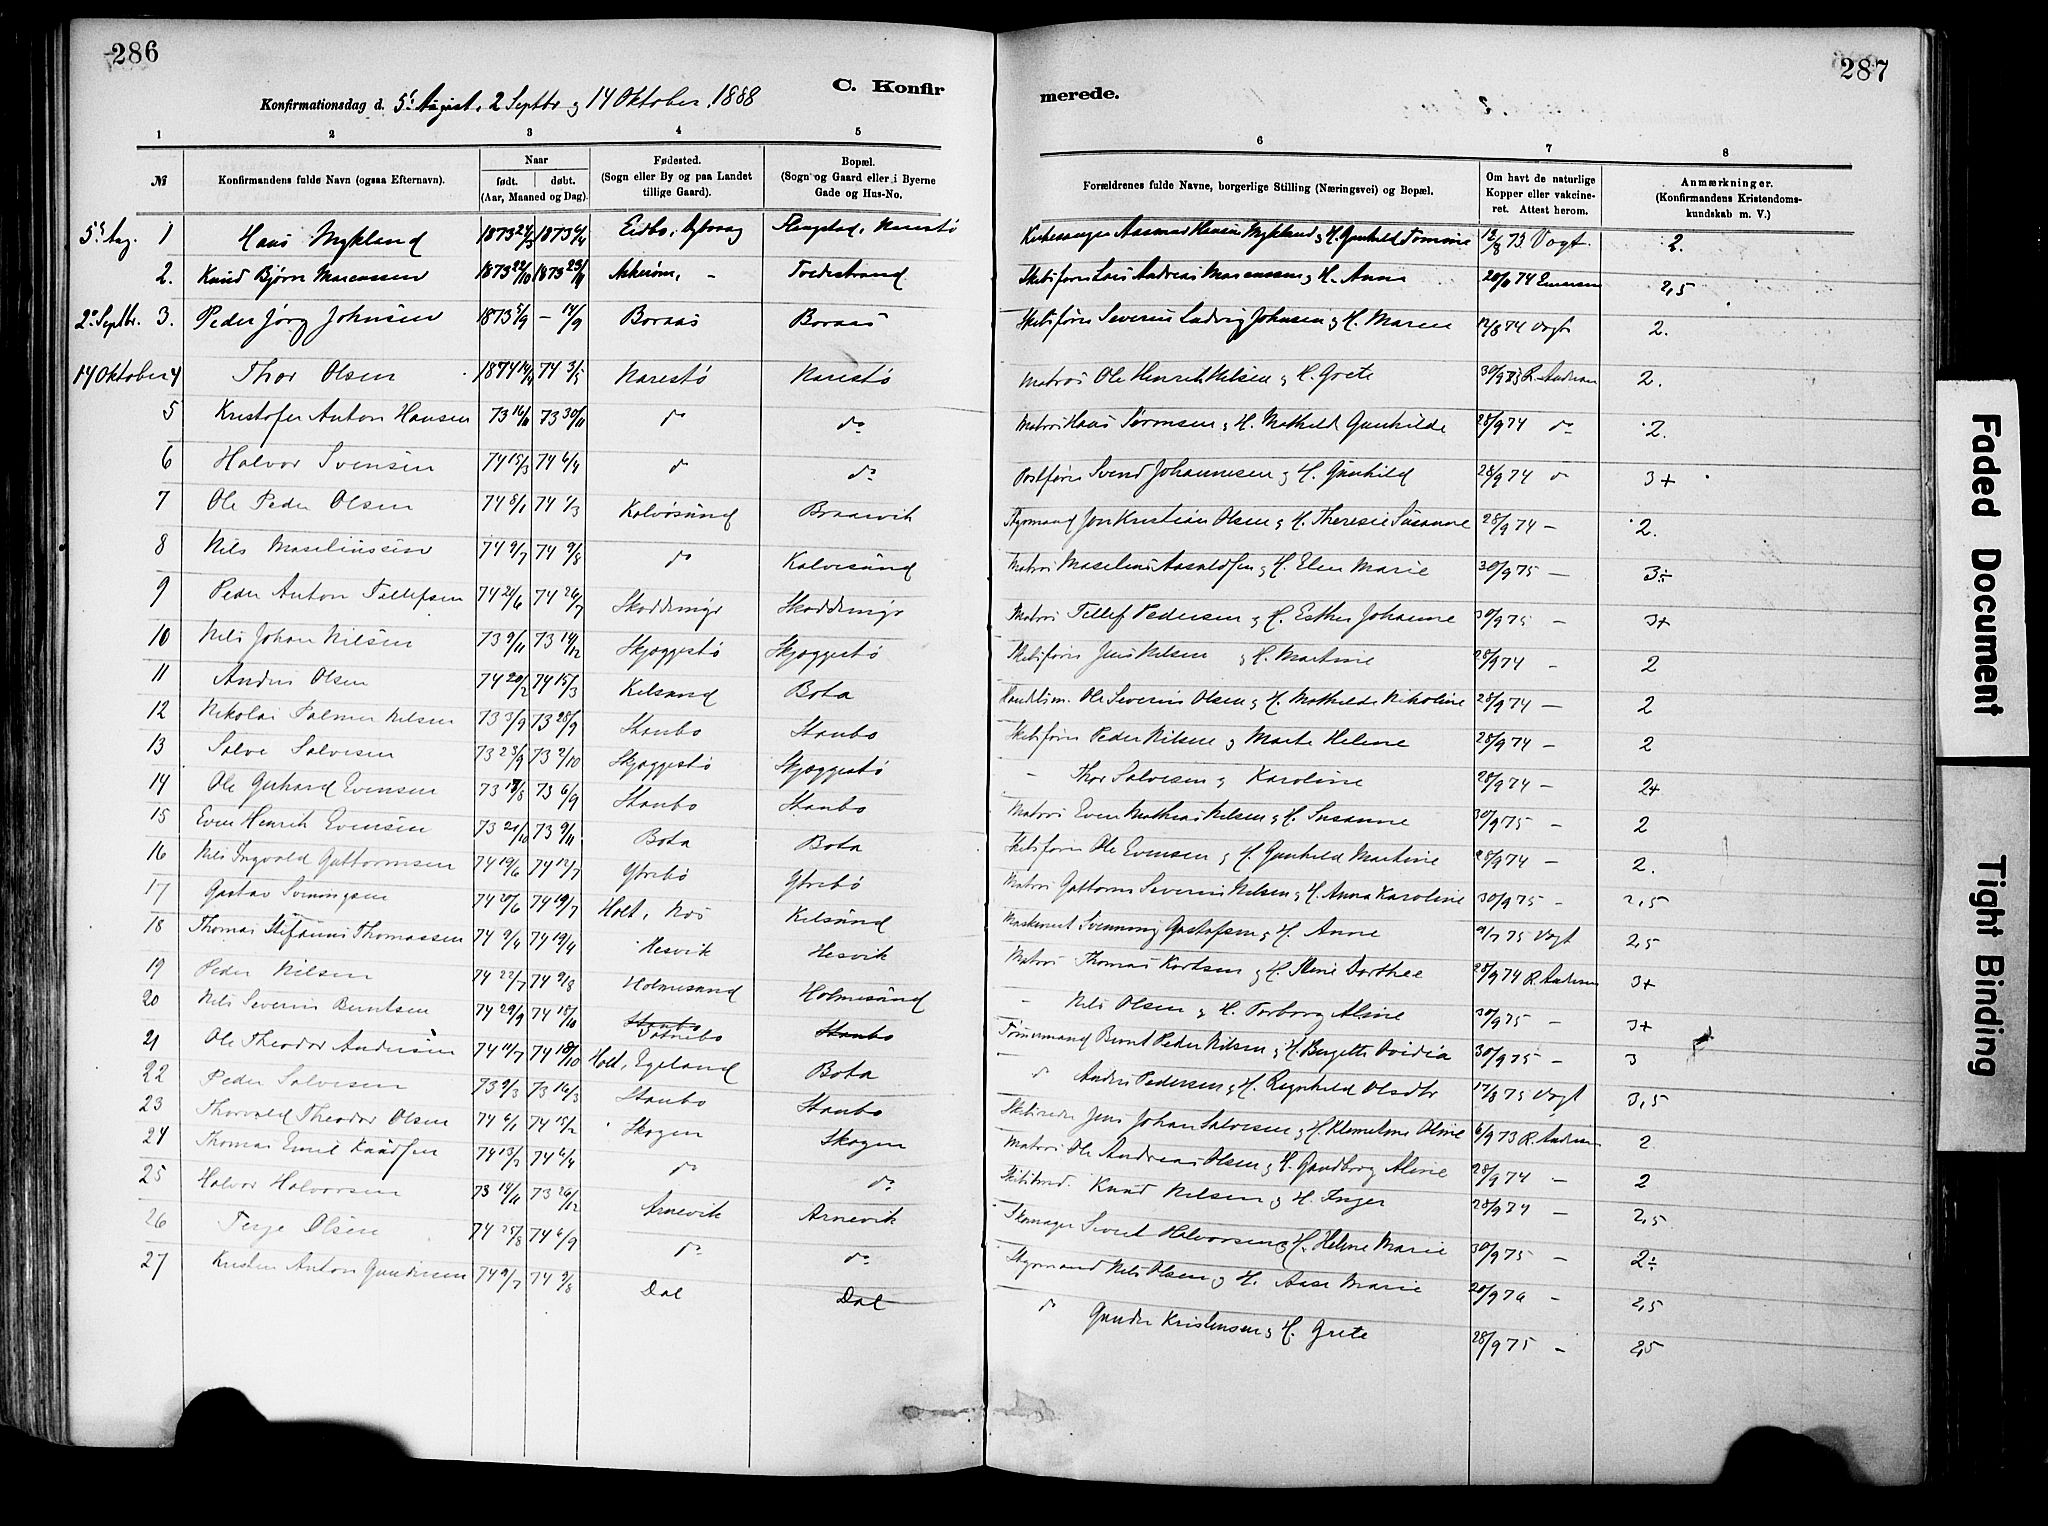 286
C. Konfir
Konfirmationsdag d. 5t August, 2 Septbr og 14 Oktober 1888
1 2 3 4 5
№ Konfirmandens fulde Navn (ogsaa Efternavn). Naar født. døbt. (Aar, Maaned og Dag). Fødested. (Sogn eller By og paa Landet tillige Gaard). Bopæl. (Sogn og Gaard eller i Byerne Gade og Hus-No.
5t Aug. 1 Hans Mykland 1873 1873 Eidbo, Dybvaag Narestø
2. Knud Bjørn Marcussen 1873 22/10 1873 23/11 Askerøen, - Tvedestrand
2 Septbr. 3. Peder Jørg Johnsen 1873 5/9 - 14/9 Boraas Boraas
14 Oktober 4 Thor Olsen 1874 74 3/5 Narestø Narestø
5 Kristofer Anton Hansen 73 73 30/11 do do
6 Halvor Svensen 74 15/3 74 6/4 do do
7 Ole Peder Olsen 74 8/1 74 1/3 Kalvøsund Braarvik
8 Nils Maseliussen 74 9/7 74 9/8 do Kalvesund
9 Peder Anton Tellefsen 74 21/6 74 26/7 Skoddmyr Skoddmyr
10 Nils Johan Nilsen 73 9/11 73 14/12 Skjæggestø Skjæggestø
11 Anders Olsen 74 20/2 74 15/3 Kilsund Bota
12 Nikolai Palmer Nilsen 73 3/9 73 28/9 Staubo Staubo
13 Salve Salvesen 73 23/9 73 2/10 Skjæggestø Skjæggestø
14 Ole Gerhard Evensen 73 73 6/9 Staubo Staubo
15 Even Henrik Evensen 73 21/10 73 9/11 Bota Bota
16 Nils Ingvald Guttormsen 74 19/6 74 12/7 Ytrebø Ytrebø
17 Gustav Svenningsen 74 20/6 74 19/7 Holt, Næs Kilsund
18 Thomas Stefanus Thomassen 74 9/4 74 19/4 Hesvik Hesvik
19 Peder Nilsen 74 22/7 74 9/8 Holmesund Holmesund
20 Nils Severin Berntsen 74 29/9 74 18/10 Staubo Staubo
21 Ole Theodor Andersen 74 11/7 74 18/10 Holt, Egeland Bota
22 Peder Salvesen 73 9/3 73 16/3 Staubo Staubo
23 Thorvald Theodor Olsen 74 6/1 74 15/2 Skogen Skogen
24 Thomas Emil Knudsen 74 74 6/4 do do
25 Halvor Halvorsen 73 14/11 73 26/12 Arnevik Arnevik
26 Terje Olsen 74 25/8 74 6/9 do do
27 Kristen Anton Gundersen 74 9/7 74 9/8 Dal Dal
287
merede.
6 7 8
Forældrenes fulde Navne, borgerlige Stilling (Næringsvei) og Bopæl. Om havt de naturlige Kopper eller vakcineret. Attest herom. Anmærkninger. (Konfirmandens Kristendomskundskab m. V.)
Kirkesanger Aasmund Hansen Mykland og H. Gunhild Tomine 73 Vogt. 2.
Skibsfører Lars Andreas Marcussen og H. Anna 74 2,5
Skibsfører Severin Ludvig Johnsen og H. Maren 74 Vogt 2.
Matros Ole Henrik Nilsen og H. Grete 30/9 75 R. Andersen 2.
Matros Hans Sørensen og H. Mathilde Gunhilde 28/9 74 do 2.
Postfører Svend Johannesen og H. Gunhild 28/9 74 do 3+
Styrmand Jon Kristian Olsen og H. Theresie Susanne 28/9 74 - 2.
Matros Maselius Aasvaldsen og H. Elen Marie 30/9 75 - 3÷
Matros Tellef Pedersen og H. Esther Johanne 30/9 75 - 3+
Skibsfører Jens Nilsen og H. Martine 28/9 74 - 2
Handelsm. Ole Severin Olsen og H. Mathilde Nikoline 28/9 74 - 2
Skibsfører Peder Nilsen og Marte Helene 28/9 74 - 2
- Thor Salvesen og Karoline 28/9 74 - 2+
Matros Even Mathias Nilsen og H. Susanne 30/9 75 - 2
Skibsfører Ole Evensen og H. Gunhild Martine 28/9 74 - 2.
Matros Guttorm Severin Nilsen og H. Anna Karoline 30/9 75 - 2,5
Maskinist Svenning Gustafsen og H. Anne 9/7 75 Vogt 2,5
Matros Thomas Kortsen og H. Stine Dorthee 28/9 74 R. Andersen 3+
- Nils Olsen og H. Torborg Aline 30/9 75 - 3+
Tømmermand Bernt Peder Nilsen og H. Bergette Ovidia 30/9 75 - 3
do Anders Pedersen og H. Regnhild Olsdtr 17/8 75 Vogt 3,5
Skibsreder Jens Johan Salvesen og H. Klemetine Oline 6/9 73 R. Andersen 2
Matros Ole Andreas Olsen og H. Gundborg Aline 28/9 74 - 2
Knud Nilsen og H. Inger 28/9 74 - 2,5
Skomager Sivert Halvorsen og H. Helene Marie 30/9 75 - 2÷
Styrmand Nils Olsen og H. Aase Marie 20/9 76 - 2,5
do Gunder Kristensen og H. Grete 28/9 75 - 2,5
Faded Document
Tight Binding